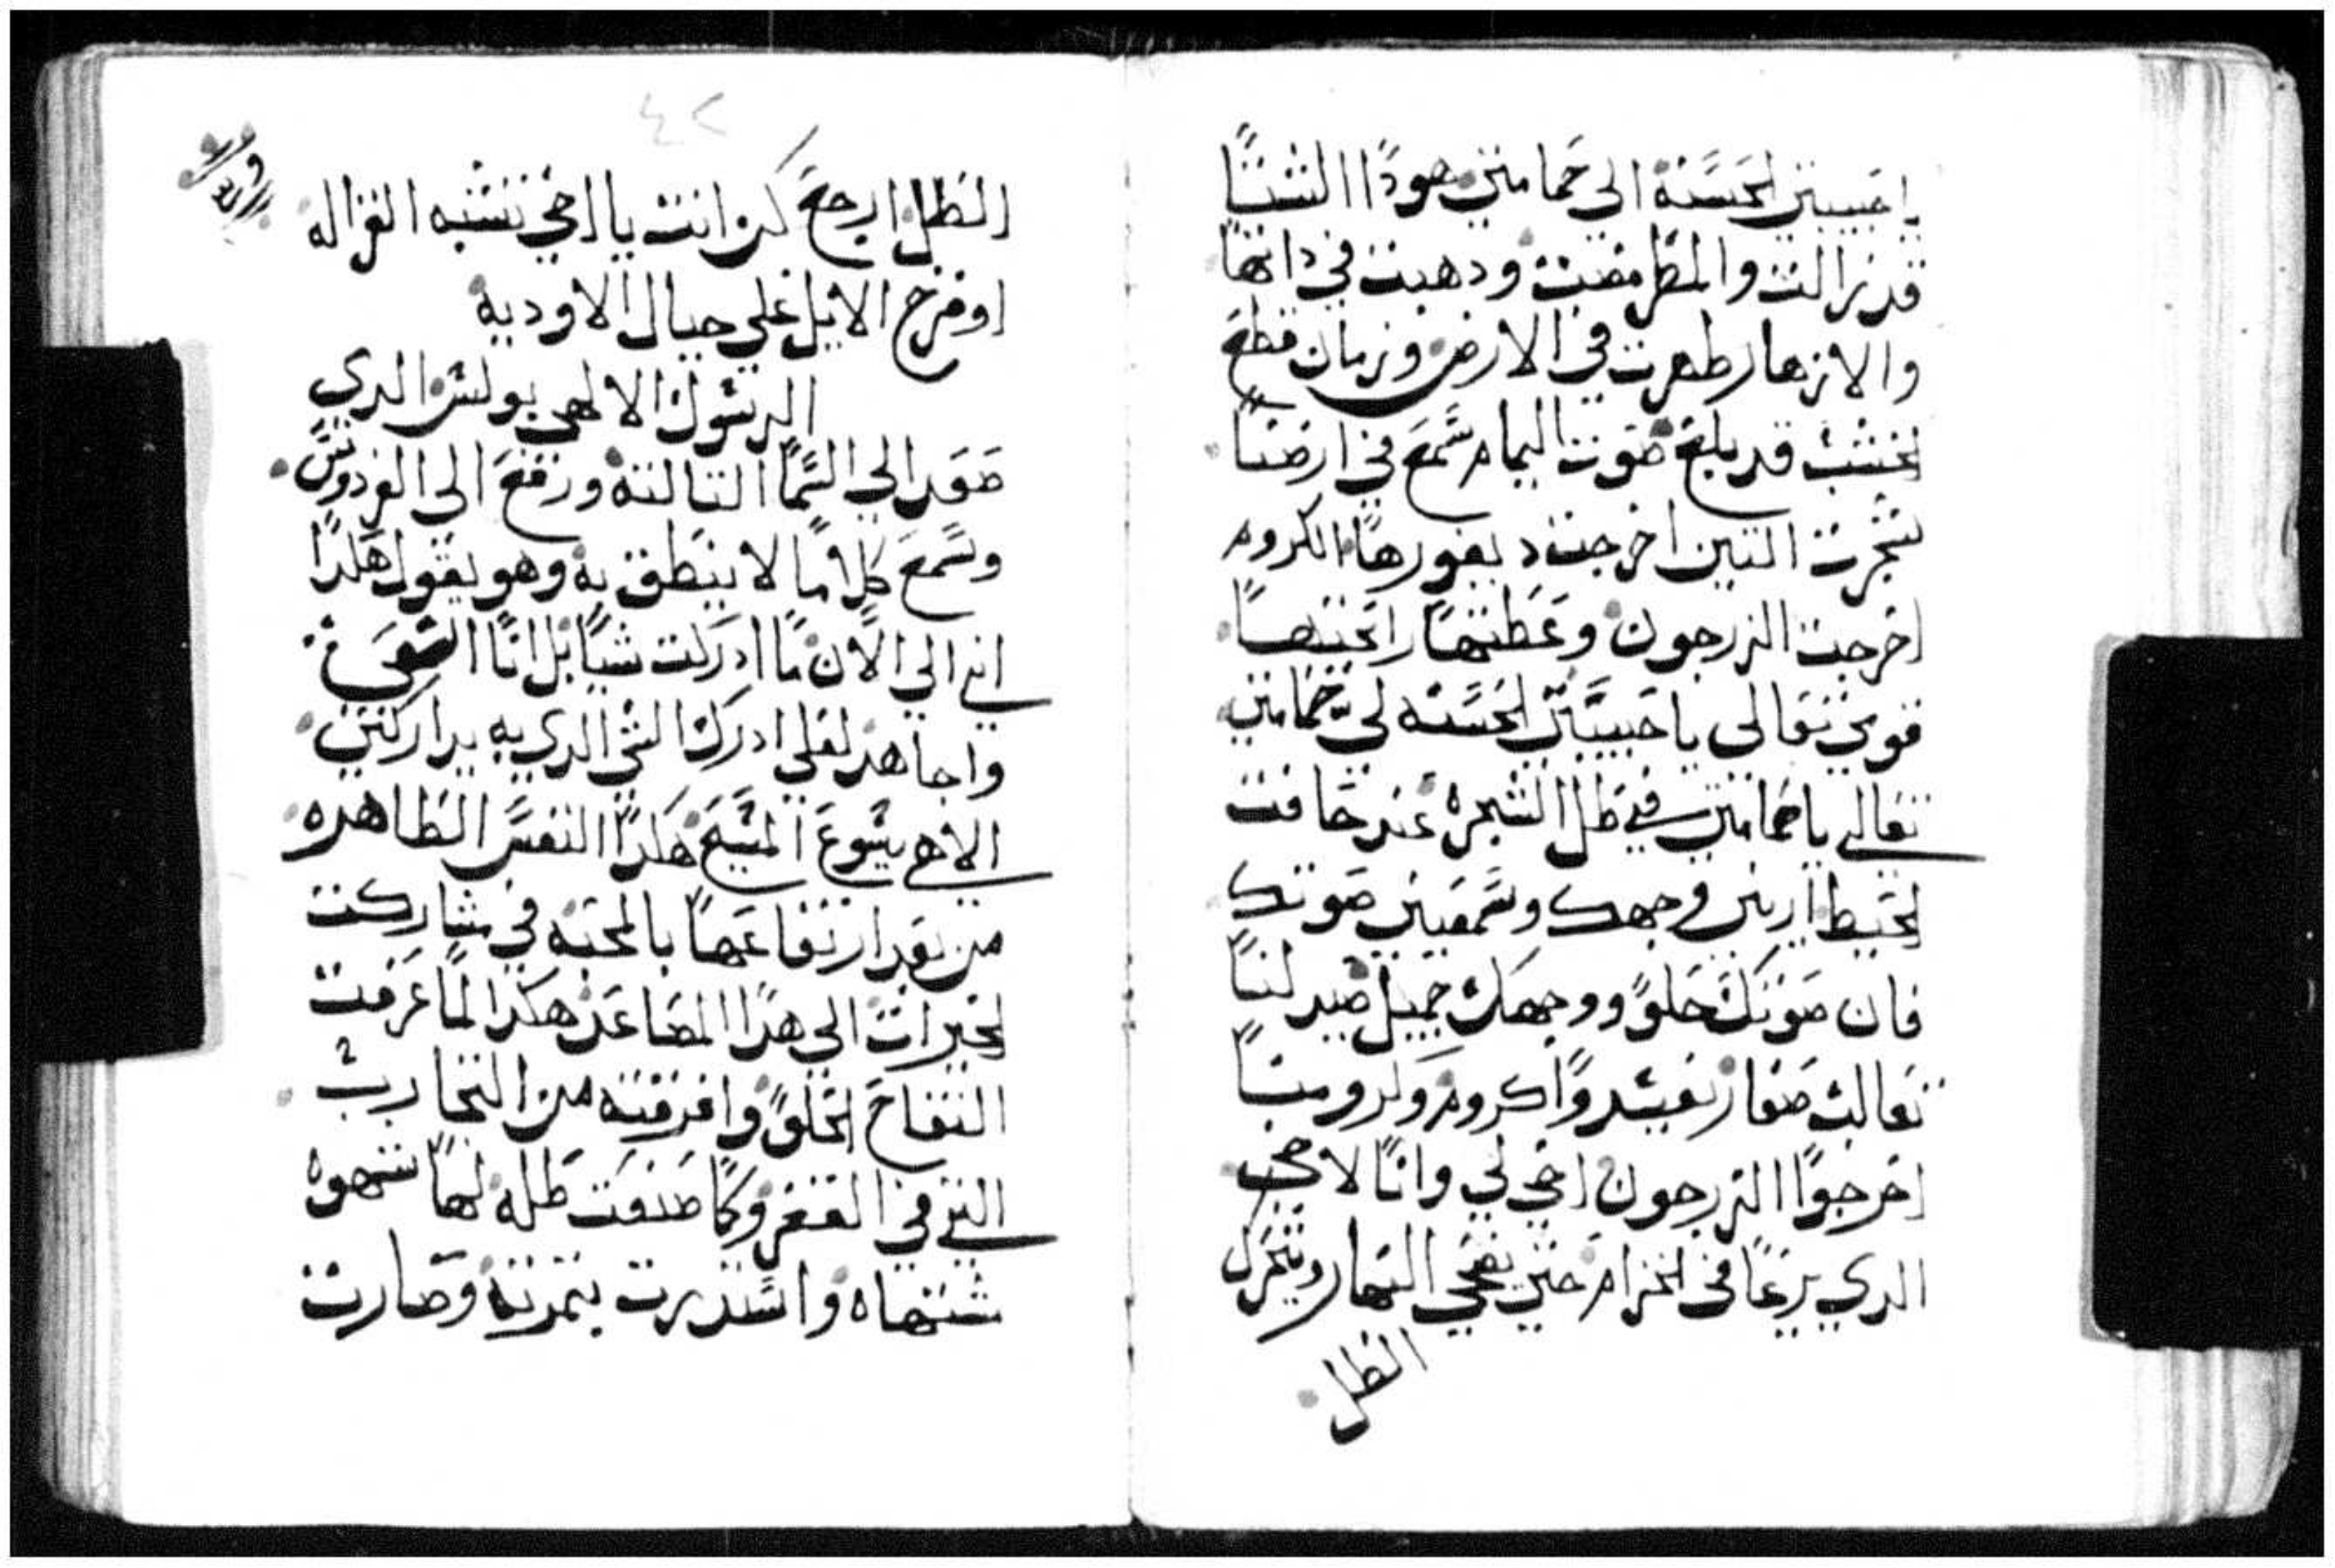 احبيبتي الحسنة الي حمامتي هودا الشتا
قد زالت والمطر مضت ودهبت في داتها
والازهار ظهرت في الارض وزمان قطع
الخشب قد بلغ صوت اليمام سمع في ارضنا
شجرت التين اخرجت بفورها الكروم
اخرجت الزرجون وعطتها رايحتها
قومي تعالي يا حبيبتي الحسنه لي حمامتي
تعالي يا حمامتي في ظل الشجره عند حافت
الحيط اريني وجهك وسمعيني صوتك
فان صوتك حلو ووجهك جميل صيد لنا
تعالب صغار تفسدوا كروم وكرومنا
اخرجوا الزرجون اخي لي وانا لاخي
الدي يرعا في الخزام حتي يضحي النهار وتنزل
الظل
٤٢
الظل ارجع كن انت يا اخي تشبه الغزاله
او فرخ الايل علي جبال الاوديه
الرسول الالهي بولس الدي
صعد الي السما التالتة ورفع الي الفردوس
وسمع كلاما لا ينطق به وهو يقول هكدا
اني الي الان ما ادركت شيا بل انا اسعي
واجاهد لعلي ادرك الشي الدي به يداركني
الاهي يسوع المسيح هكدا النفس الطاهره
من بعد ارتفاعها بالمحبه في مشاركت
الخيرات الي هدا المصاعد هكدا لما عرفت
التفاح الحلو وافرقته من التجارب
التي في القفر وكما صنعت ظله لها شهوه
شتهاه واستدرت بتمرته وصارت